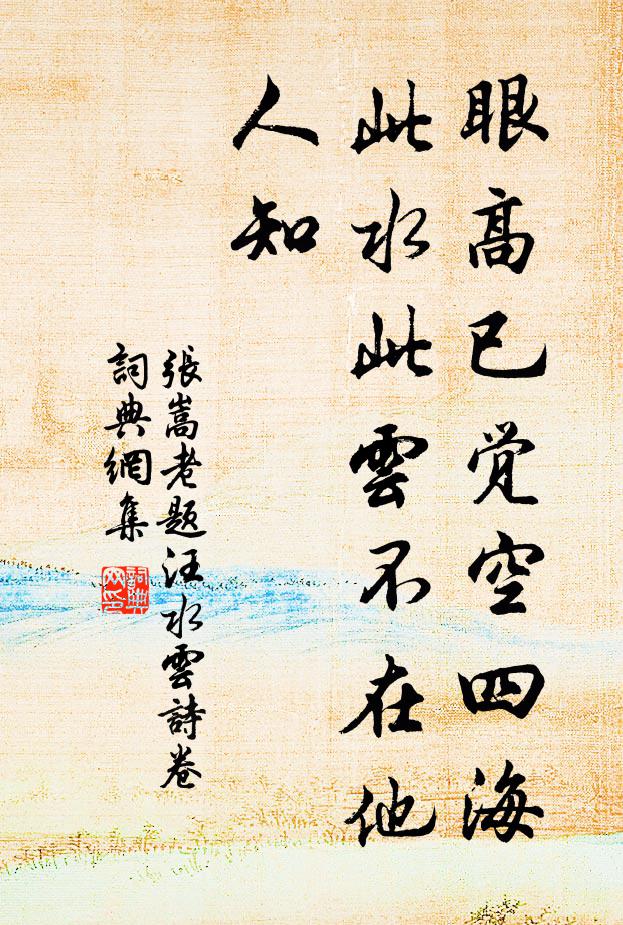 眼高已觉空四海
此水此雲不在他
人知
張嵩老题汪水雲詩卷
詞典網集
詞典